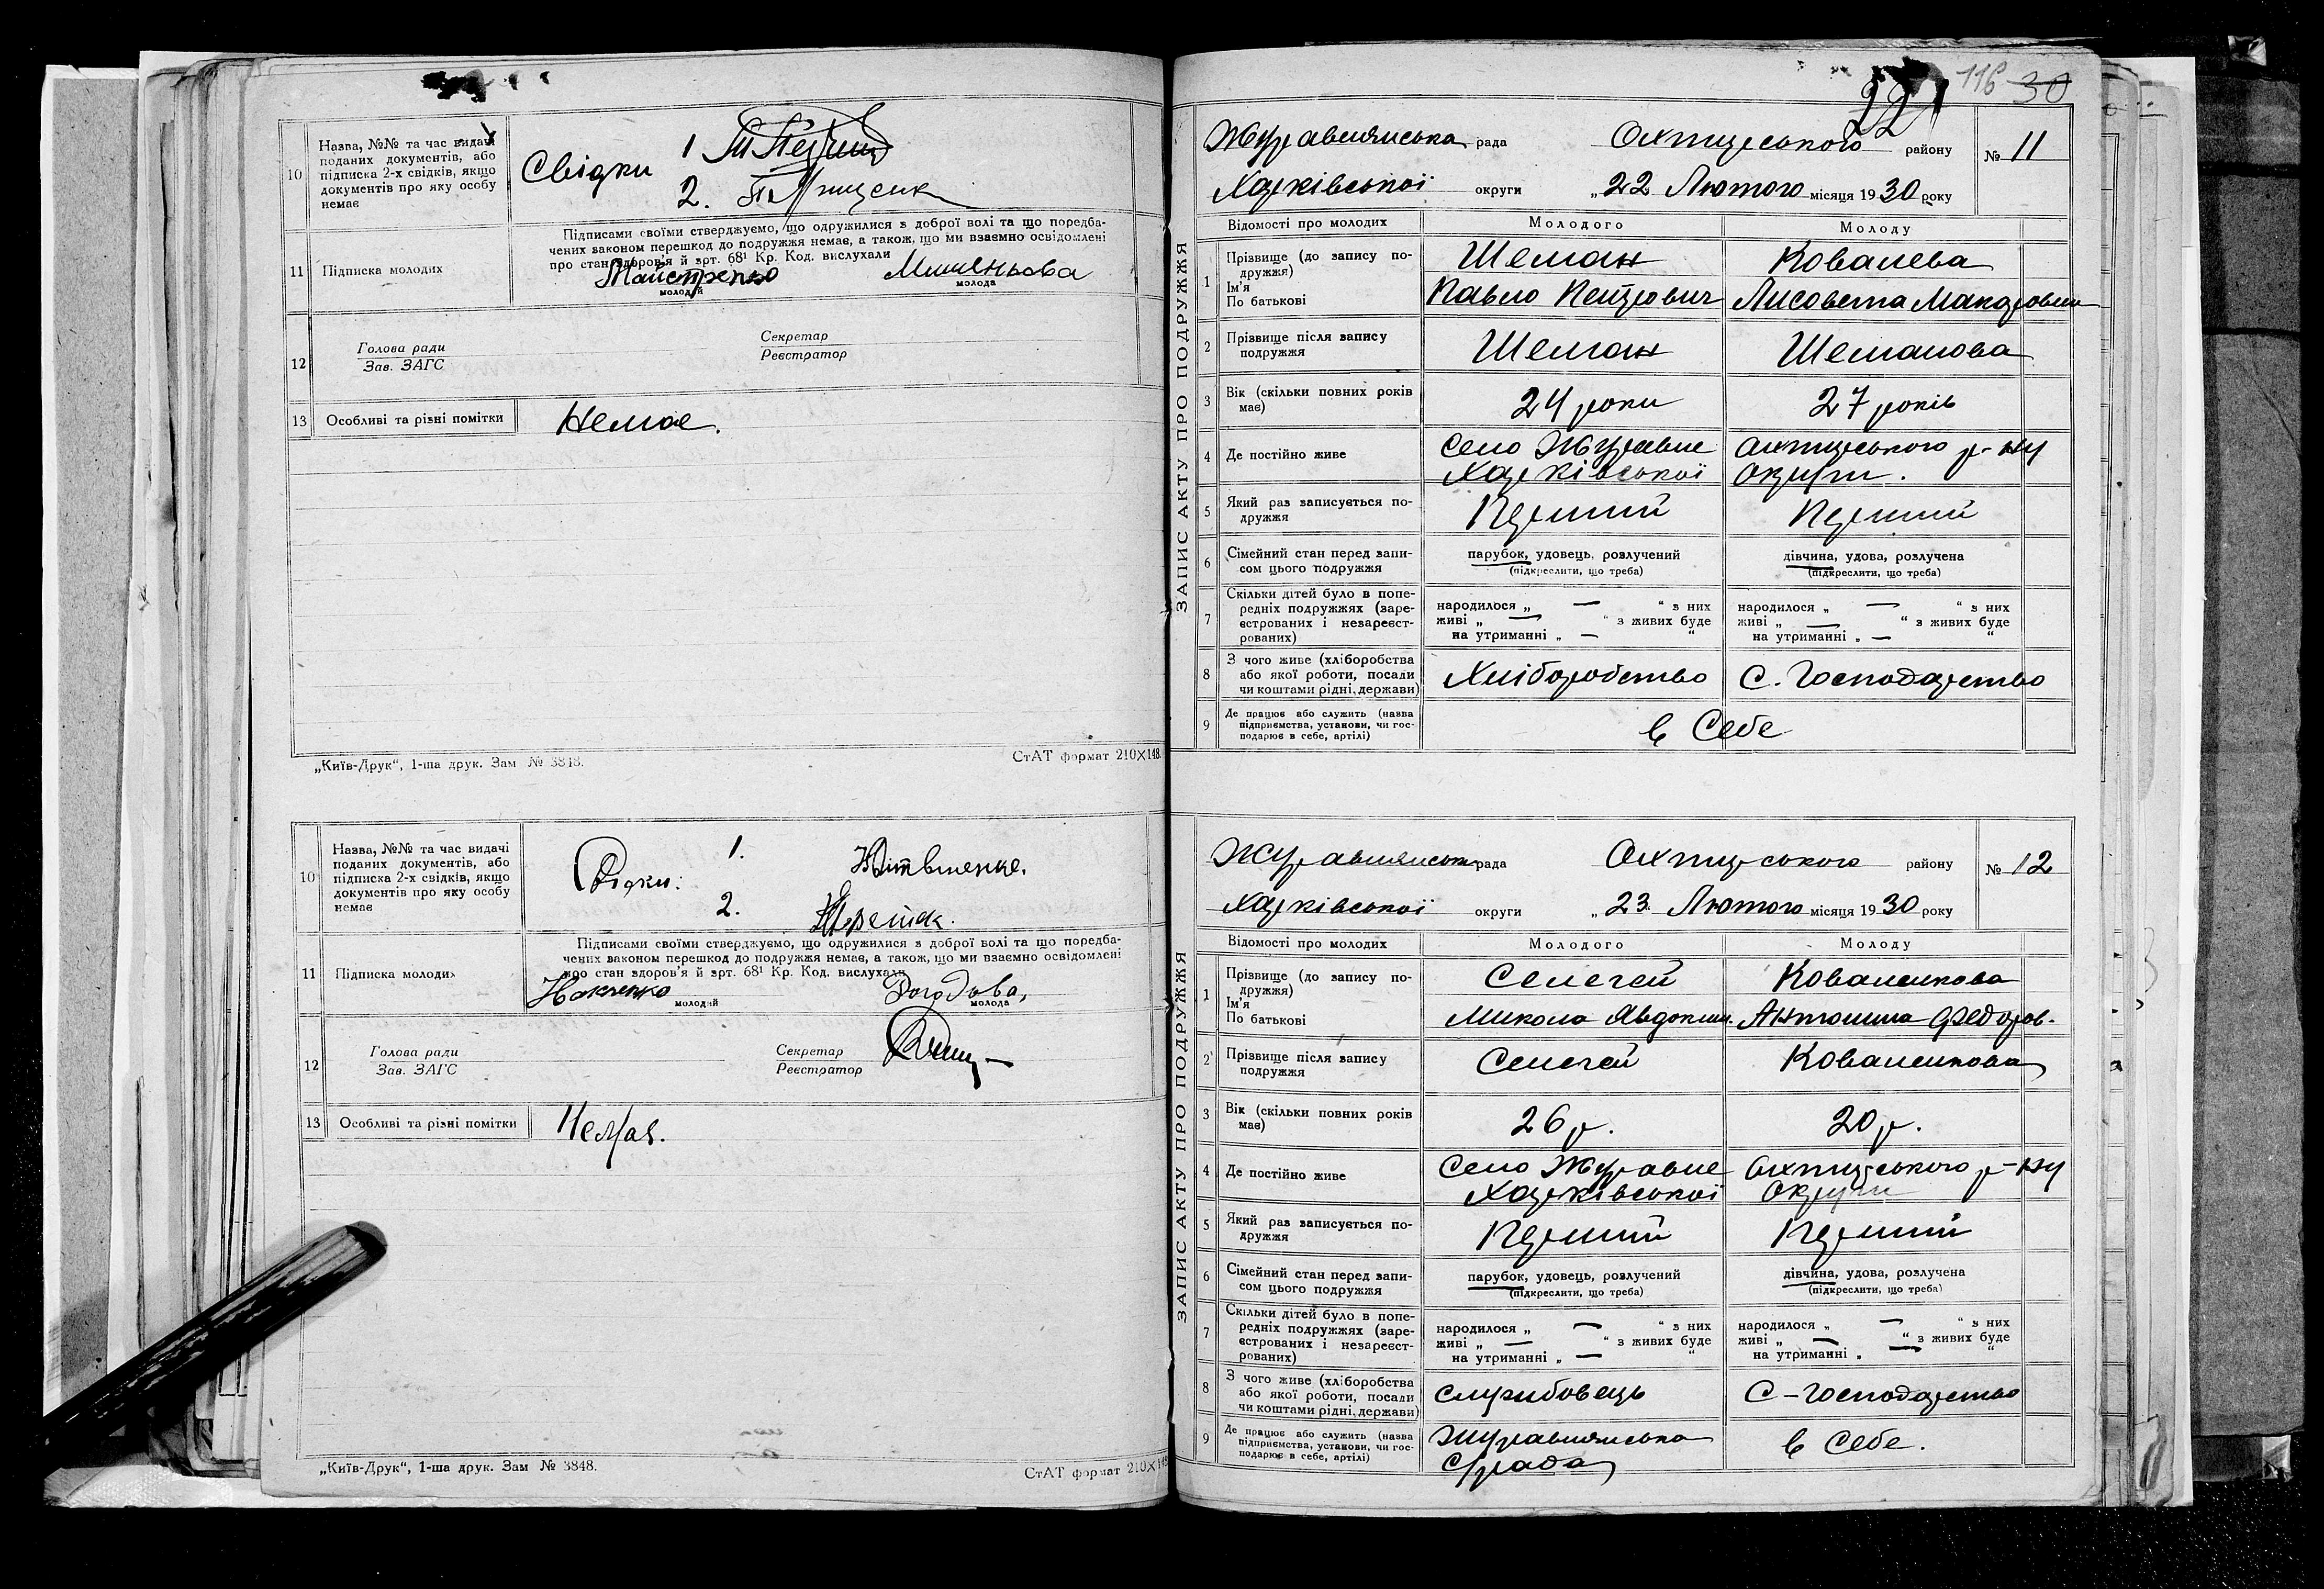 10
Назва, №№ та час видачі
поданих документів, або
підписка 2-х свідків, якщо
документів про яку особу
немає
Свідки 1
2.
Підписами своїми стверджуємо, що одружилися з доброї волі та що поредба-
чених законом перешкод до подружжя немає, а також, що ми взаємно освідомлені
про стан здоров'я й арт. 68¹ Кр. Код. вислухали
11 Підписка молодих
молодий молода
12
Голова ради
Зав. ЗАГС
Секретар
Реєстратор
13 Особливі та різні помітки Немає.
„Київ-Друк“, 1-ша друк. Зам № 3848. СтАТ формат 210×148.
10
Назва, №№ та час видачі
поданих документів, або
підписка 2-х свідків, якщо
документів про яку особу
немає
Свідки: 1.
2.
Підписами своїми стверджуємо, що одружилися з доброї волі та що поредба-
чених законом перешкод до подружжя немає, а також, що ми взаємно освідомлені
про стан здоров'я й арт. 68¹ Кр. Код. вислухали
11 Підписка молодих
молодий молода
12
Голова ради
Зав. ЗАГС
Секретар
Реєстратор
13 Особливі та різні помітки Немає.
„Київ-Друк“, 1-ша друк. Зам № 3848. СтАТ формат 210×148
116 30
ЗАПИС АКТУ ПРО ПОДРУЖЖЯ
Журавлянська рада Охтирського району № 11
Харківської округи „ 22 Лютого місяця 1930 року
Відомості про молодих Молодого Молоду
1 Прізвище (до запису по-
дружжя)
Ім'я
По батькові
Шеман Ковалева
Павло Петрович Лисовета Макаровна
2 Прізвище після запису
подружжя
Шеман Шеманова
3 Вік (скільки повних років
має)
24 роки 27 років
4 Де постійно живе
Село Журавне Охтирського р-ну
Харківської Округи.
5 Який раз записується по-
дружжя
Перший Перший
6 Сімейний стан перед запи-
сом цього подружжя
парубок, удовець, розлучений дівчина, удова, розлучена
(підкреслити, що треба) (підкреслити, що треба)
7 Скільки дітей було в попе-
редніх подружжях (заре-
єстрованих і незареєст-
рованих)
народилося „ — “ з них народилося „ — “ з них
живі „ — “ з живих буде живі „ — “ з живих буде
на утриманні „ — “ на утриманні „ — “
8 З чого живе (хліборобства
або якої роботи, посади
чи коштами рідні, держави)
Хліборобство С. Господарство
9 Де працює або служить (назва
підприємства, установи, чи гос-
подарює в себе, артілі)
в Себе
ЗАПИС АКТУ ПРО ПОДРУЖЖЯ
Журавлянська рада Охтирського району № 12
Харківської округи „ 23. Лютого місяця 1930 року
Відомості про молодих Молодого Молоду
1 Прізвище (до запису по-
дружжя)
Ім'я
По батькові
Селегей Коваленкова
Микола Явдоким. Антонина Федоров.
2 Прізвище після запису
подружжя
Селегей Коваленкова
3 Вік (скільки повних років
має)
26 р. 20 р.
4 Де постійно живе
Село Журавне Охтирського р-ну
Харківської Округи
5 Який раз записується по-
дружжя
Перший Перший
6 Сімейний стан перед запи-
сом цього подружжя
парубок, удовець, розлучений дівчина, удова, розлучена
(підкреслити, що треба) (підкреслити, що треба)
7 Скільки дітей було в попе-
редніх подружжях (заре-
єстрованих і незареєст-
рованих)
народилося „ — “ з них народилося „ — “ з них
живі „ — “ з живих буде живі „ — “ з живих буде
на утриманні „ — “ на утриманні „ — “
8 З чого живе (хліборобства
або якої роботи, посади
чи коштами рідні, держави)
службовець С-Господарство
9 Де працює або служить (назва
підприємства, установи, чи гос-
подарює в себе, артілі)
Журавлянська в Себе.
С/рада